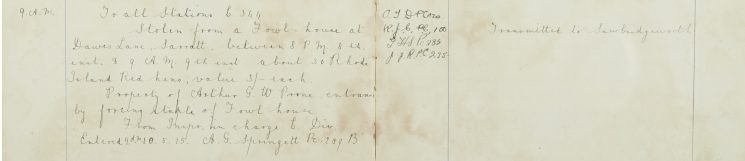 9 A.M.
To all Stations E 344
Stolen from a Fowl-house at
Dawes Lane, Sarratt, between 8 P.M. 8th.
inst. & 9 A.M. 9th inst. about 30 Rhode
Island Red hens, value 5/- each.
Property of Arthur G. W. Prone, entrance
by forcing staple of Fowl house.
From Inspr. in charge E. Div
Entered 10.5.15. A. G. Springett Pc 209 B
P.C. 100
P.C. 225
Transmitted to Sawbridgeworth